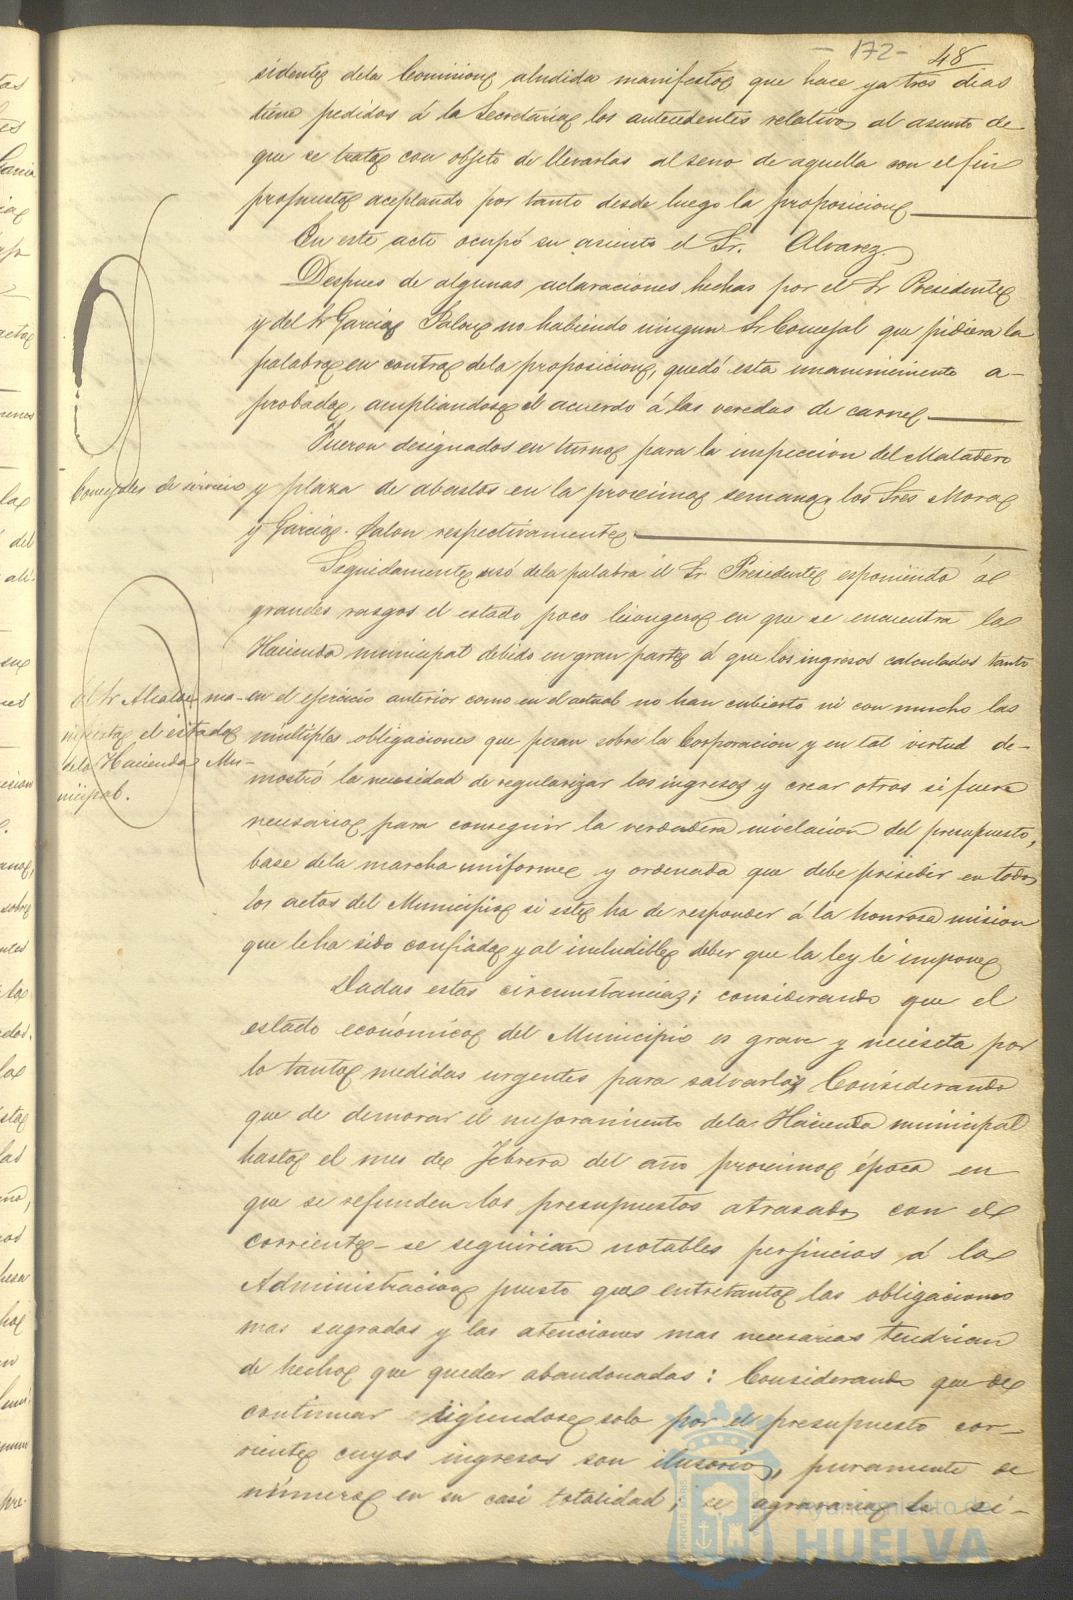 - 172 -
48
sidente dela Comision, aludida manifestó que hace ya tres dias
tiene pedidos á la Secretaria los antecedentes relativos al asunto de
que se trata con objeto de llevarlas al seno de aquella con el fin
propuesto aceptando por tanto desde luego la proposicion
En este acto ocupó su asiento el Sr. Alvarez.
Despues de algunas aclaraciones hechas por el Sr Presidente
y del Sr Garcia Jalon no habiendo ningun Sr Concejal que pidiera la
palabra en contra dela proposicion, quedó esta unanimemente a-
probada, ampliandose el acuerdo á las veredas de carne
Fueron designados en turno para la inspeccion del Matadero
Concejales de servicio
y plaza de abastos en la procsima semana, los Sres Mora
y Garcia Jalon respectivamente.
Seguidamente usó dela palabra el Sr Presidente esponiendo á
grandes rasgos el estado poco lisongero en que se encuentra la
Hacienda municipal debido en gran parte á que los ingresos calculados tanto
El Sr Alcalde ma-
nifiesta el estado
dela Hacienda Mu-
nicipal.
en el ejercicio anterior como en el actual no han cubierto ni con mucho las
multiples obligaciones que pesan sobre la Corporacion y en tal virtud de-
mostró la necesidad de regularizar los ingresos y crear otros si fuera
necesario para conseguir la verdadera nivelacion del presupuesto,
base dela marcha uniforme y ordenada que debe presidir en todos
los actos del Municipio si este ha de responder á la honrosa mision
que le ha sido confiada y al ineludible deber que la ley le impone
Dadas estas circunstancias; considerando que el
estado económico del Municipio es grave y necesita por
lo tanto medidas urgentes para salvarlo; Considerando
que de demorar el mejoramiento dela Hacienda municipal
hasta el mes de Febrero del año procsimo época en
que se refunden los presupuestos atrasados con el
corriente se seguirian notables perjuicios á la
Administracion puesto que entretanto las obligaciones
mas sagradas y las atenciones mas necesarias tendrian
de hecho que quedar abandonadas: Considerando que de
continuar rigiendose solo por el presupuesto cor-
riente cuyos ingresos son ilusorios, puramente de
número en su casi totalidad, se agravaria la si-
Ayuntamiento de
HUELVA